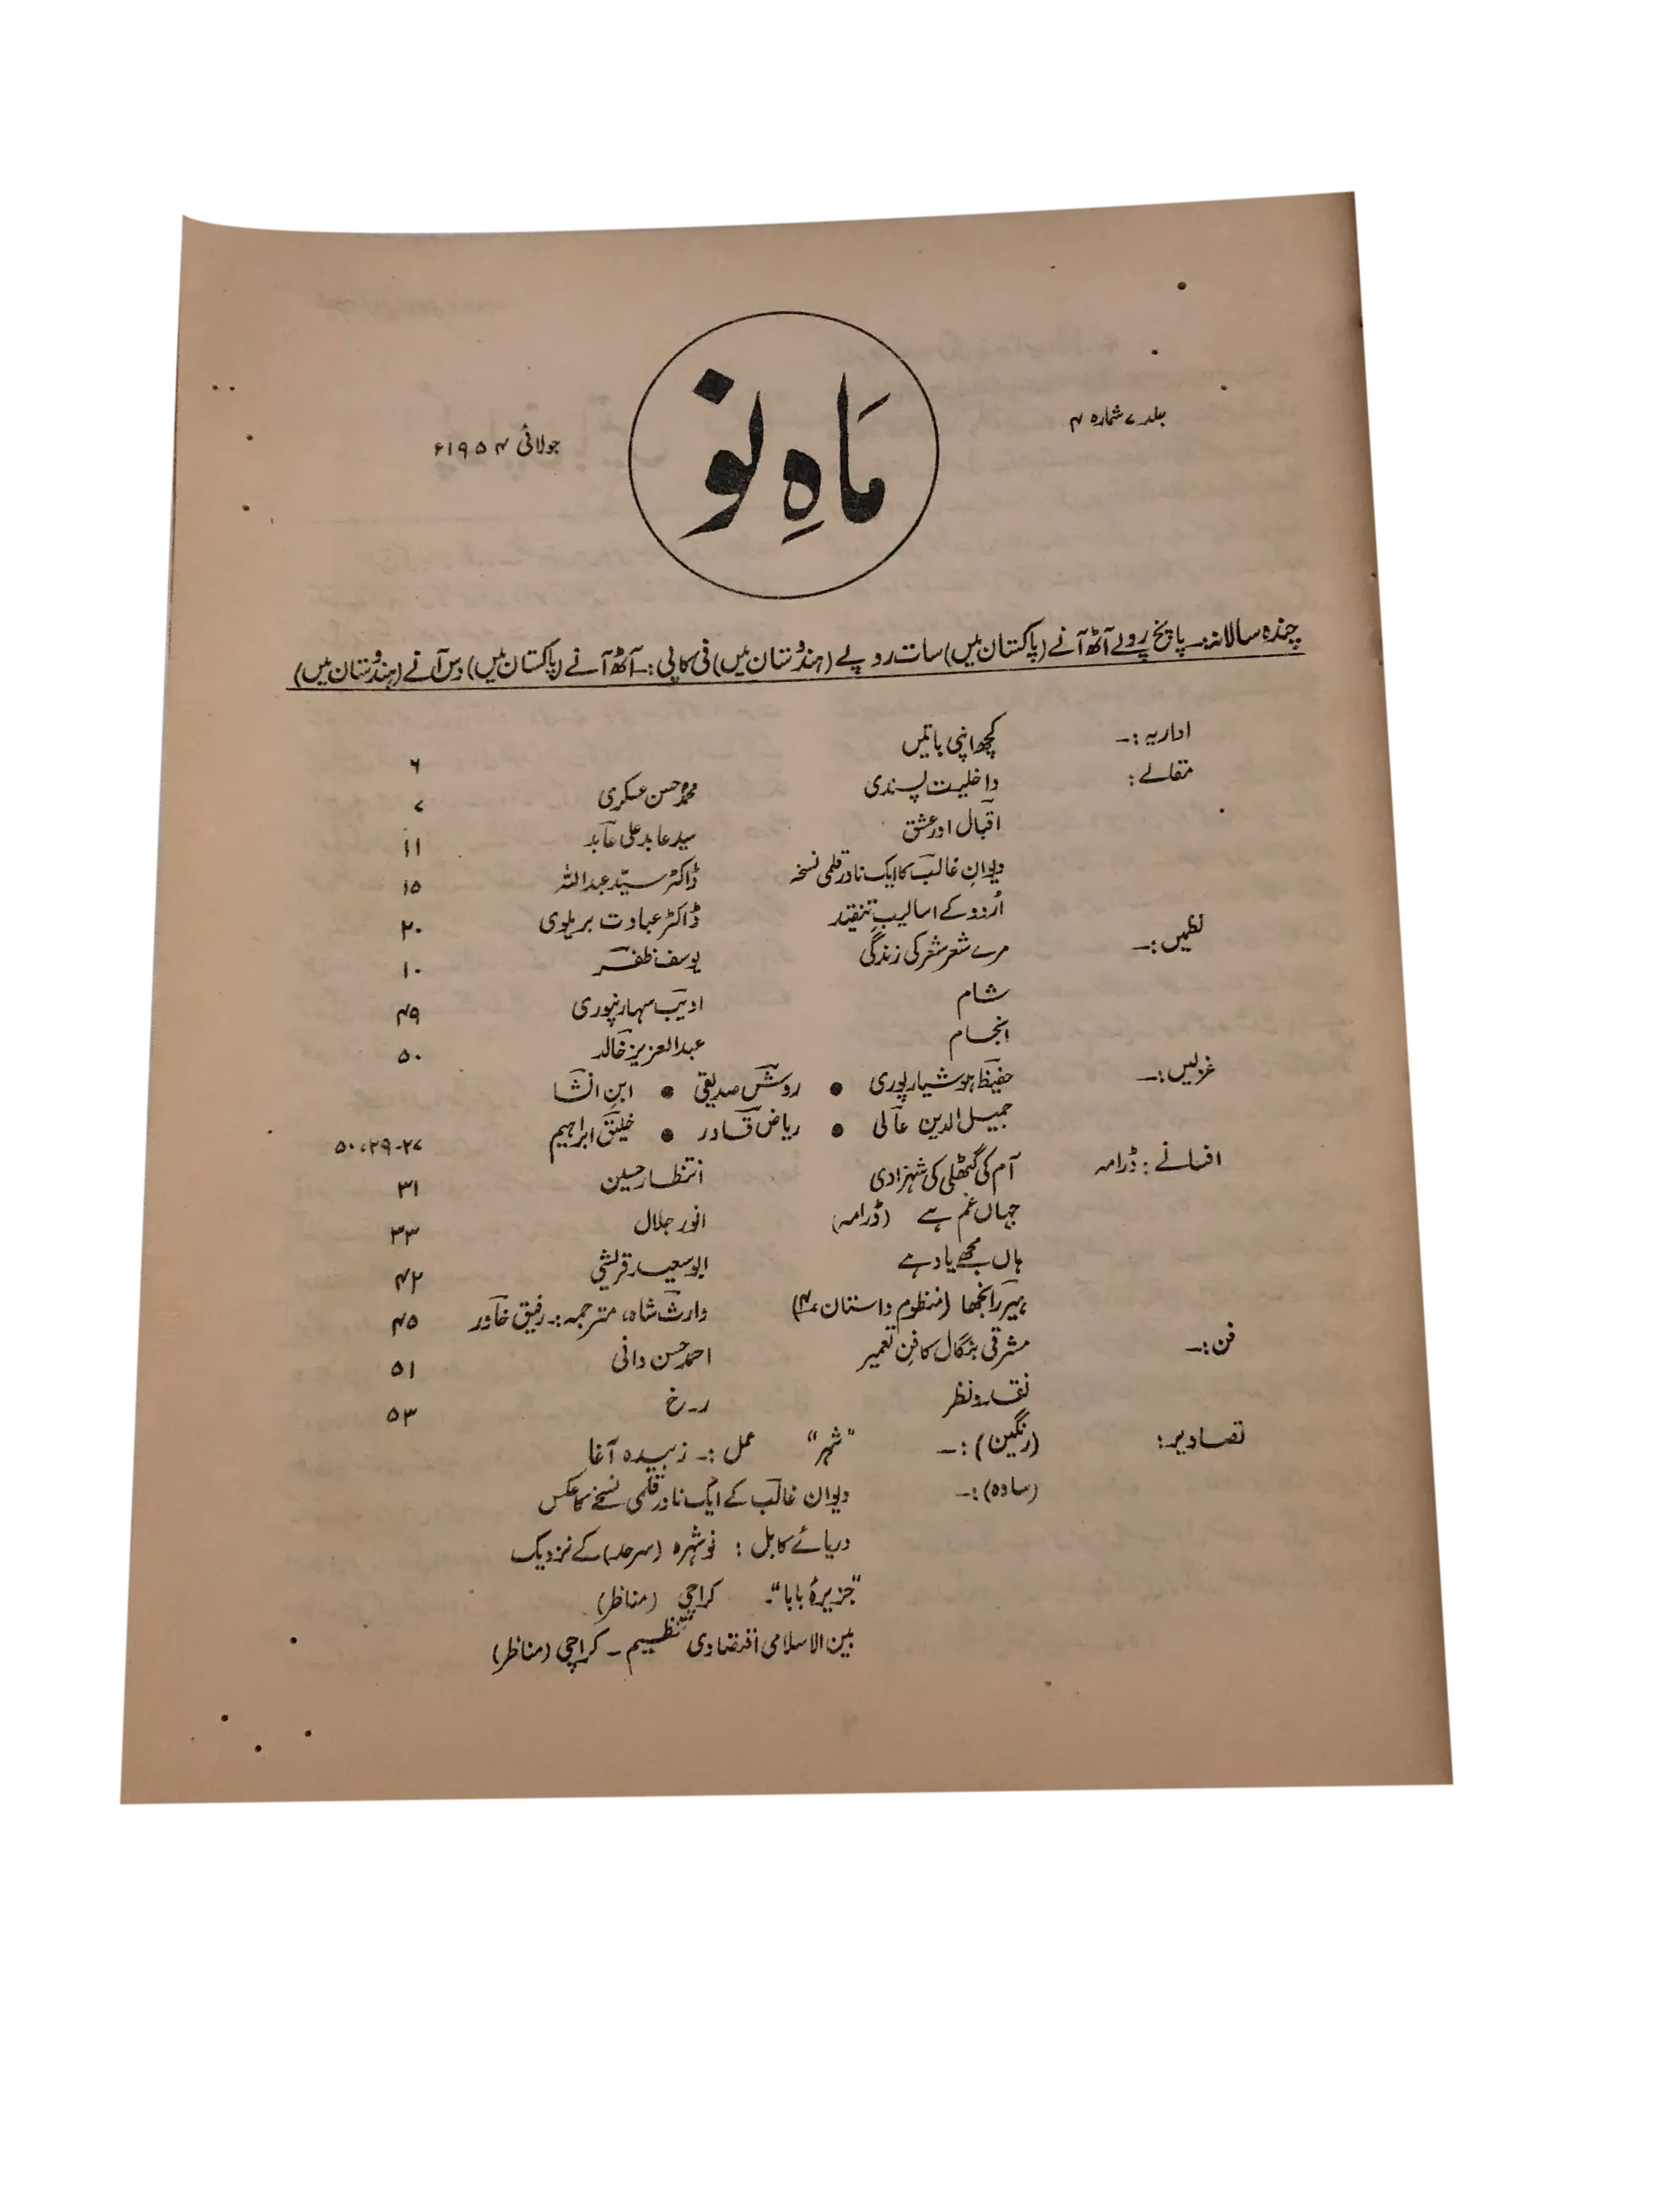 جلد ۷ شمارہ ۴
ماہِ نو
جولائی ۱۹۵۴ء
چندہ سالانہ:۔ پانچ روپے آٹھ آنے (پاکستان میں) سات روپے (ہندوستان میں) فی کاپی:۔ آٹھ آنے (پاکستان میں) دس آنے (ہندوستان میں)
اداریہ:۔ کچھ اپنی باتیں ۶
مقالے: داخلیت پسندی محمد حسن عسکری ۷
اقبال اور عشق سید عابد علی عابد ۱۱
دیوانِ غالب کا ایک نادر قلمی نسخہ ڈاکٹر سیّد عبداللہ ۱۵
اُردو کے اسالیبِ تنقید ڈاکٹر عبادت بریلوی ۲۰
نظمیں:۔ مرے شعر شعر کی زندگی یوسف ظفر ۱۰
شام ادیب سہارنپوری ۴۹
انجام عبدالعزیز خالد ۵۰
غزلیں:۔ حفیظ ہوشیارپوری ● روش صدیقی ● ابنِ انشا
جمیل الدین عالی ● ریاض قادر ● خلیق ابراہیم ۲۷-۲۹، ۵۰
افسانے: ڈرامہ آم کی گٹھلی کی شہزادی انتظار حسین ۳۱
جہاں غم ہے (ڈرامہ) انور جلال ۳۳
ہاں مجھے یاد ہے ابو سعید قریشی ۴۲
ہیر رانجھا (منظوم داستان ۴) وارث شاہ، مترجمہ:۔ رفیق خاور ۴۵
فن:۔ مشرقی بنگال کا فنِ تعمیر احمد حسن دانی ۵۱
نقد و نظر ر۔خ ۵۳
تصاویر: (رنگین):۔ "شہر" عمل:۔ زبیدہ آغا
(سادہ):۔ دیوان غالب کے ایک نادر قلمی نسخے کا عکس
دریائے کابل: نوشہرہ (سرحد) کے نزدیک
"جزیرۂ بابا"۔ کراچی (مناظر)
بین الاسلامی اقتصادی تنظیم ۔ کراچی (مناظر)